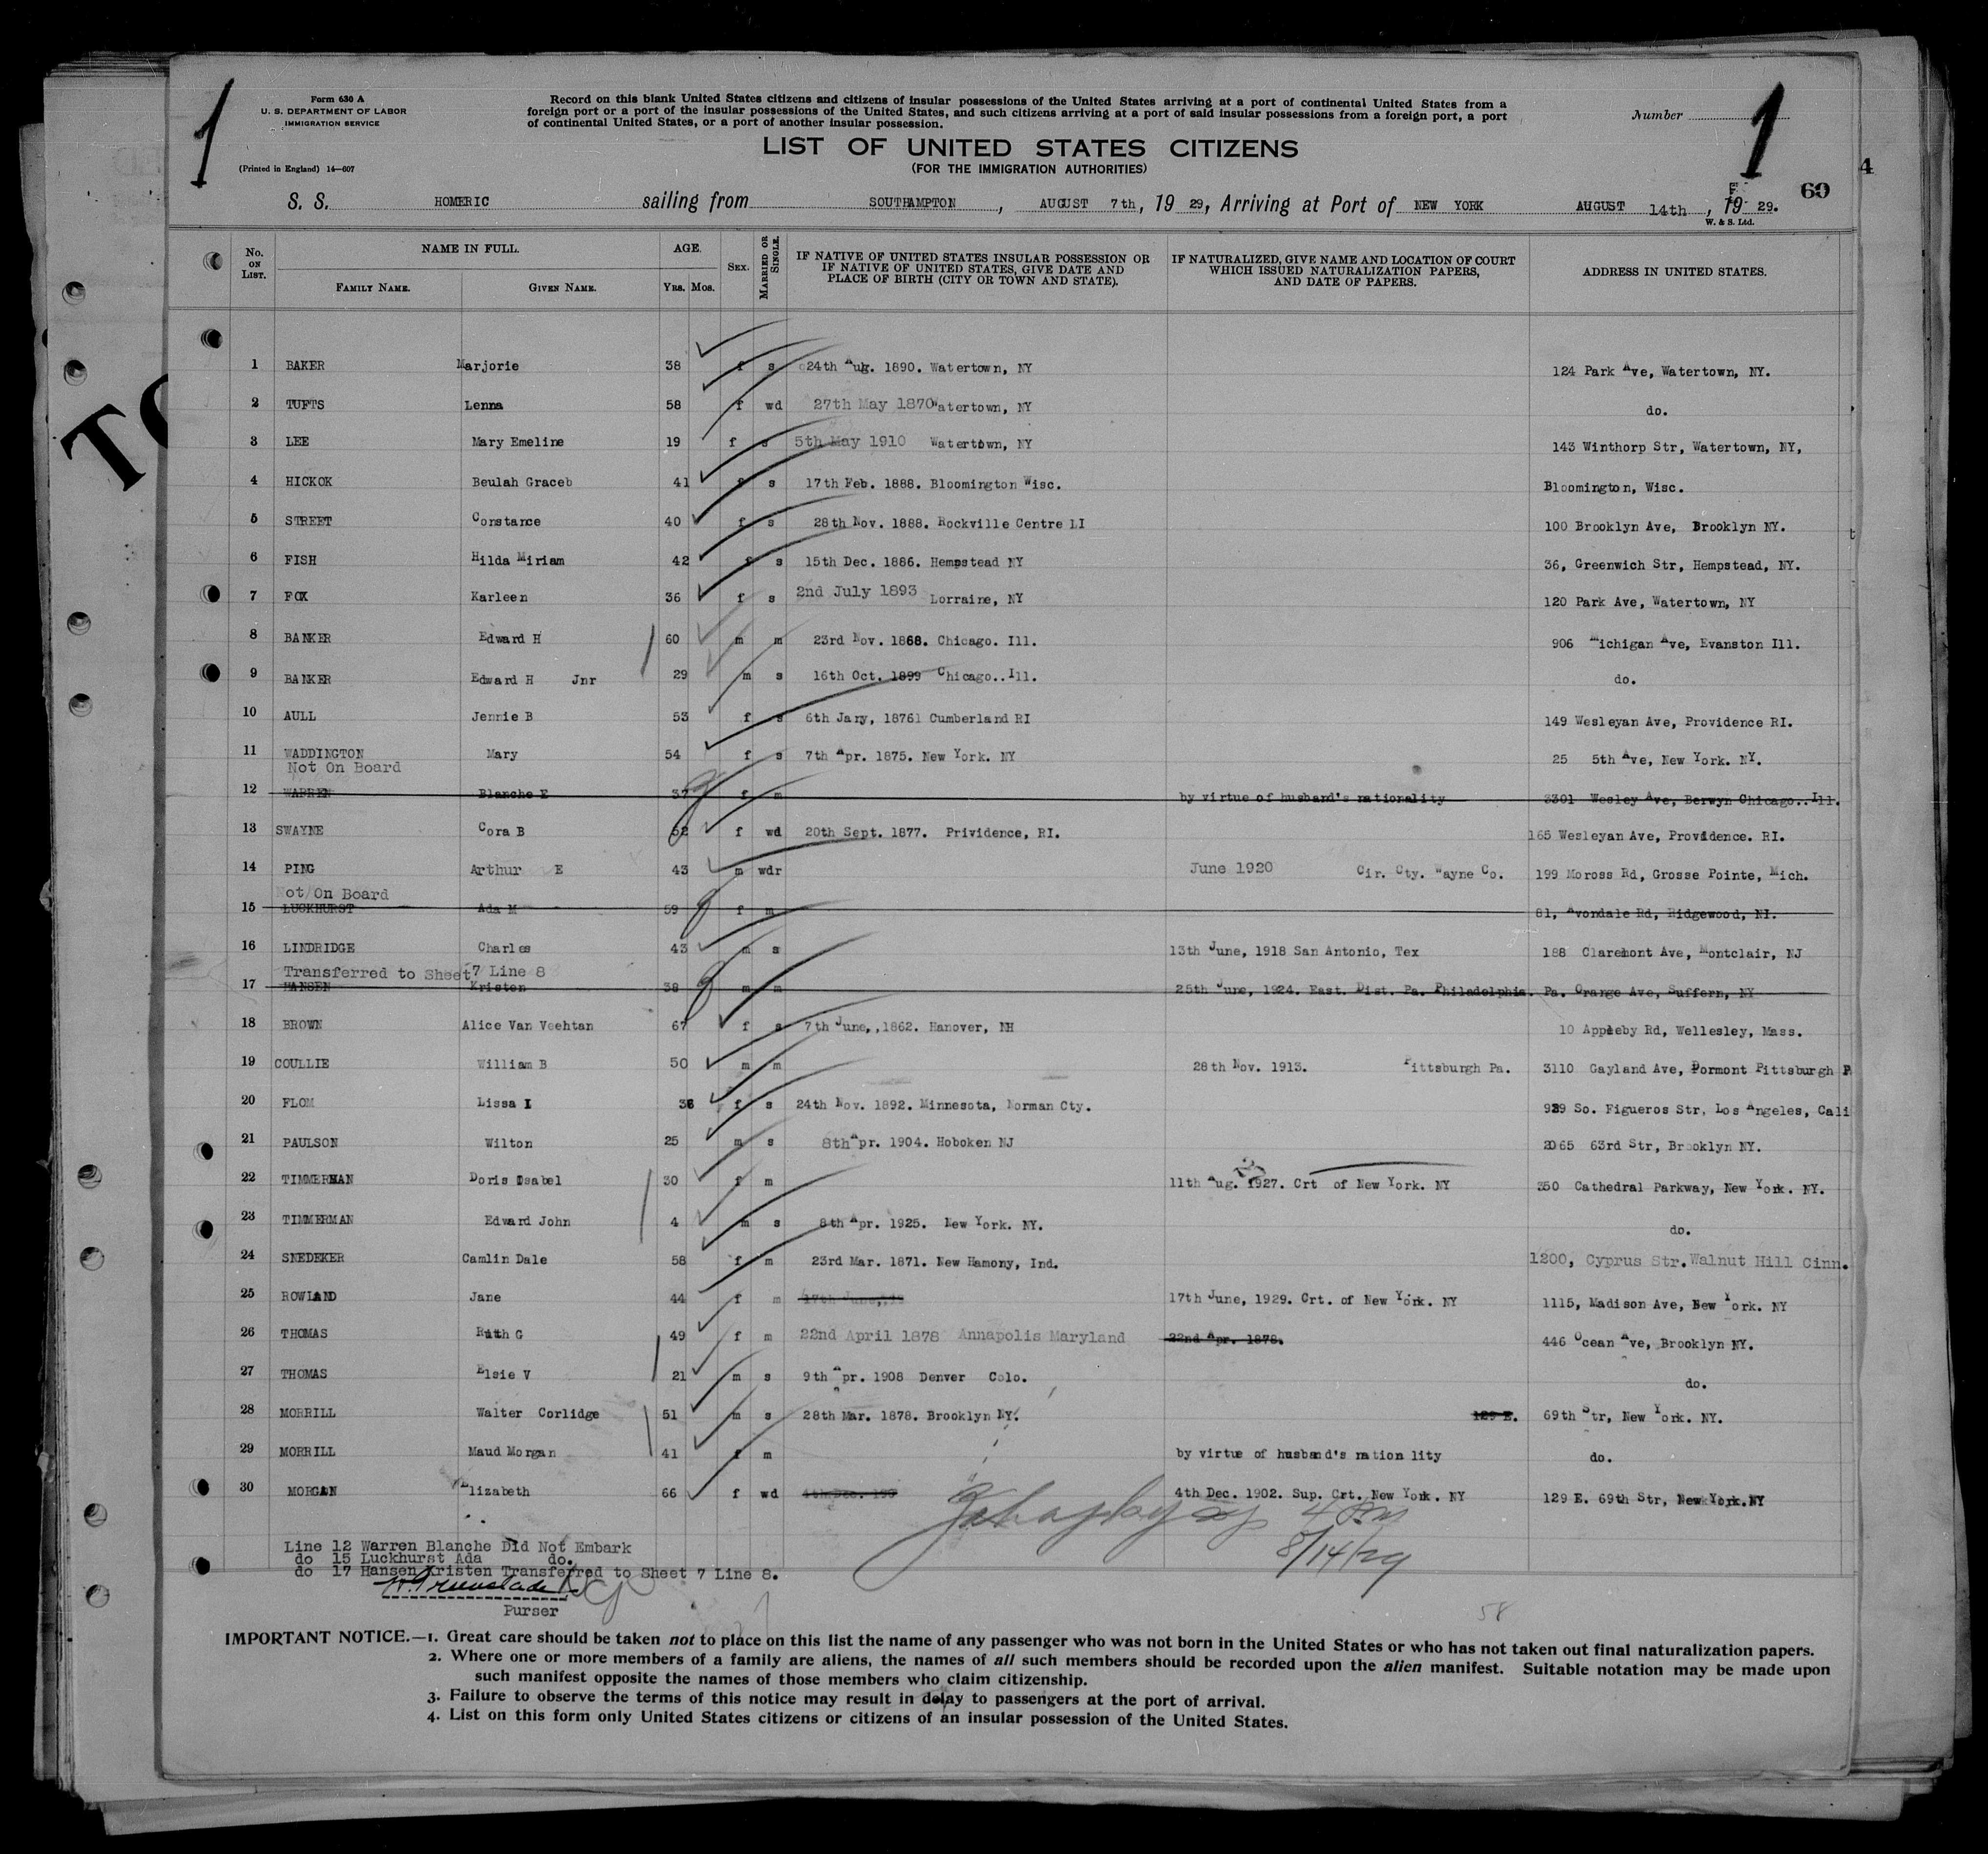 1
1
Form 630 A
U. S. DEPARTMENT OF LABOR
IMMIGRATION SERVICE
(Printed in England) 14—607
Record on this blank United States citizens and citizens of insular possessions of the United States arriving at a port of continental United States from a
foreign port or a port of the insular possessions of the United States, and such citizens arriving at a port of said insular possessions from a foreign port, a port
of continental United States, or a port of another insular possession.
Number
LIST OF UNITED STATES CITIZENS
(FOR THE IMMIGRATION AUTHORITIES)
4
60
S. S. HOMERIC sailing from SOUTHAMPTON, AUGUST 7th, 19 29, Arriving at Port of NEW YORK AUGUST 14th, 19 29.
W. & S. Ltd.
No. ON LIST. NAME IN FULL. FAMILY NAME. GIVEN NAME. AGE. YRS. MOS. SEX. MARRIED OR SINGLE. IF NATIVE OF UNITED STATES INSULAR POSSESSION OR IF NATIVE OF UNITED STATES, GIVE DATE AND PLACE OF BIRTH (CITY OR TOWN AND STATE). IF NATURALIZED, GIVE NAME AND LOCATION OF COURT WHICH ISSUED NATURALIZATION PAPERS, AND DATE OF PAPERS. ADDRESS IN UNITED STATES.
TO
1 BAKER Marjorie 38 f s 24th Aug. 1890. Watertown, NY 124 Park Ave, Watertown, NY.
2 TUFTS Lenna 58 f wd 27th May 1870 Watertown, NY do.
3 LEE Mary Emeline 19 f s 5th May 1910 Watertown, NY 143 Winthorp Str, Watertown, NY,
4 HICKOK Beulah Graceb 41 f s 17th Feb. 1888. Bloomington Wisc. Bloomington, Wisc.
5 STREET Constance 40 f s 28th Nov. 1888. Rockville Centre LI 100 Brooklyn Ave, Brooklyn NY.
6 FISH Hilda Miriam 42 f s 15th Dec. 1886. Hempstead NY 36, Greenwich Str, Hempstead, NY.
7 FOX Karleen 36 f s 2nd July 1893 Lorraine, NY 120 Park Ave, Watertown, NY
8 BANKER Edward H 60 m m 23rd Nov. 1868. Chicago. Ill. 906 Michigan Ave, Evanston Ill.
9 BANKER Edward H Jnr 29 m s 16th Oct. 1899 Chicago..Ill. do.
10 AULL Jennie B 53 f s 6th Jary, 18761 Cumberland RI 149 Wesleyan Ave, Providence RI.
11 WADDINGTON Mary 54 f s 7th Apr. 1875. New York. NY 25 5th Ave, New York. NY.
Not On Board
12 WARREN Blanche E 37 f m by virtue of husband's nationality 3301 Wesley Ave, Berwyn Chicago..Ill.
13 SWAYNE Cora B 52 f wd 20th Sept. 1877. Prividence, RI. 165 Wesleyan Ave, Providence. RI.
14 PING Arthur E 43 m wdr June 1920 Cir. Cty. Wayne Co. 199 Moross Rd, Grosse Pointe, Mich.
Not On Board
15 LUCKHURST Ada M 59 f m 81, Avondale Rd, Ridgewood, NI.
16 LINDRIDGE Charles 43 m s 13th June, 1918 San Antonio, Tex 188 Claremont Ave, Montclair, NJ
Transferred to Sheet 7 Line 8
17 HANSEN Kristen 38 m m 25th June, 1924. East. Dist. Pa. Philadelphia. Pa. Orange Ave, Suffern, NY
18 BROWN Alice Van Veehtan 67 f s 7th June,,1862. Hanover, NH 10 Appleby Rd, Wellesley, Mass.
19 COULLIE William B 50 m m 28th Nov. 1913. Pittsburgh Pa. 3110 Gayland Ave, Dormont Pittsburgh P
20 FLOM Lissa I 36 f s 24th Nov. 1892. Minnesota, Norman Cty. 929 So. Figueros Str, Los Angeles, Cali
21 PAULSON Wilton 25 m s 8th Apr. 1904. Hoboken NJ 2065 63rd Str, Brooklyn NY.
22 TIMMERMAN Doris Isabel 30 f m 11th Aug. 1927. Crt of New York. NY 350 Cathedral Parkway, New York. NY.
23 TIMMERMAN Edward John 4 m s 8th Apr. 1925. New York. NY. do.
24 SNEDEKER Camlin Dale 58 f m 23rd Mar. 1871. New Hamony, Ind. 1200, Cyprus Str. Walnut Hill Cinn.
25 ROWLAND Jane 44 f m 17th June, 17th June, 1929. Crt. of New York. NY 1115, Madison Ave, New York. NY
26 THOMAS Ruth G 49 f m 22nd April 1878 Annapolis Maryland 22nd Apr. 1878. 446 Ocean Ave, Brooklyn NY.
27 THOMAS Elsie V 21 m s 9th Apr. 1908 Denver Colo. do.
28 MORRILL Walter Corlidge 51 m s 28th Mar. 1878. Brooklyn NY. 129 E. 69th Str, New York. NY.
29 MORRILL Maud Morgan 41 f m by virtue of husband's nation lity do.
30 MORGAN Elizabeth 66 f wd 4th Dec. 190 4th Dec. 1902. Sup. Crt. New York. NY 129 E. 69th Str, New York.NY
4 PM
8/14/29
Line 12 Warren Blanche Did Not Embark
do 15 Luckhurst Ada do.
do 17 Hansen Kristen Transferred to Sheet 7 Line 8.
Purser
58
IMPORTANT NOTICE.—1. Great care should be taken not to place on this list the name of any passenger who was not born in the United States or who has not taken out final naturalization papers.
2. Where one or more members of a family are aliens, the names of all such members should be recorded upon the alien manifest. Suitable notation may be made upon
such manifest opposite the names of those members who claim citizenship.
3. Failure to observe the terms of this notice may result in delay to passengers at the port of arrival.
4. List on this form only United States citizens or citizens of an insular possession of the United States.